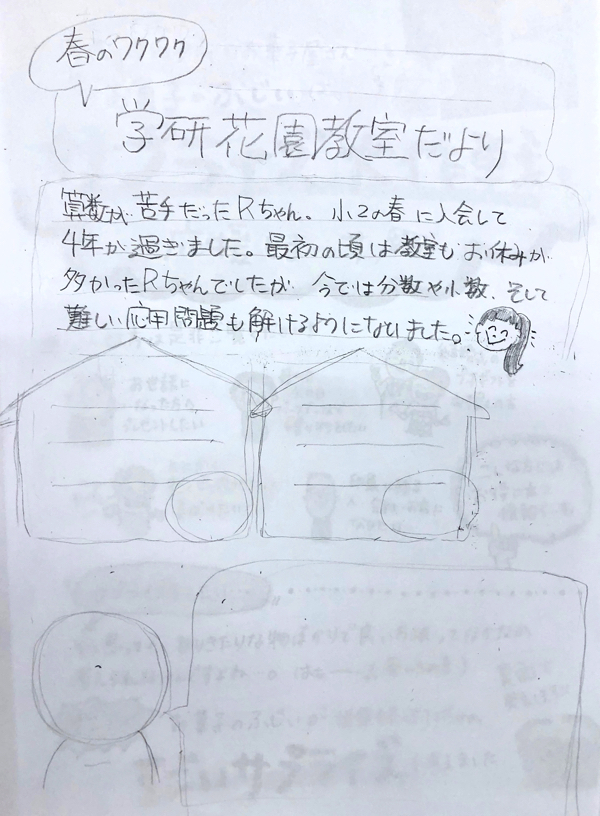 春のワクワク
学研花園教室だより
算数が苦手だったRちゃん。小2の春に入会して
4年が過ぎました。最初の頃は教室もお休みが
多かったRちゃんでしたが 今では分数や小数、そして
難しい応用問題も解けるようになりました。